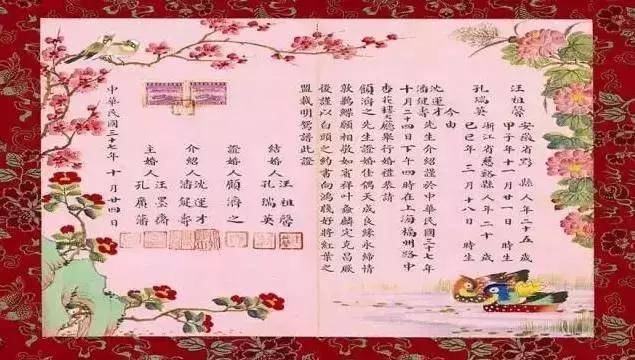 汪祖馨 安徽省黟縣人年二十五歲
甲子年十一月廿一日 時生
孔瑞英 浙江省慈谿縣人年二十歲
己巳年二月十八日 時生
今由
沈運才
潘健壽先生介紹謹於中華民國三十七年
十月二十四日下午四時在上海福州路中
杏花樓大廳舉行婚禮恭請
顧濟之先生證婚佳偶天成良緣永締情
敦鶼鰈願相敬如賓祥叶螽麟定克昌厥
後謹以白頭之約書向鴻牋好將紅葉之
盟載明鴛譜此證
結婚人 汪祖馨
孔瑞英
證婚人 顧濟之
介紹人 沈運才
潘健壽
主婚人 汪墨
孔廣藩
中華民國三十七年十月廿四日